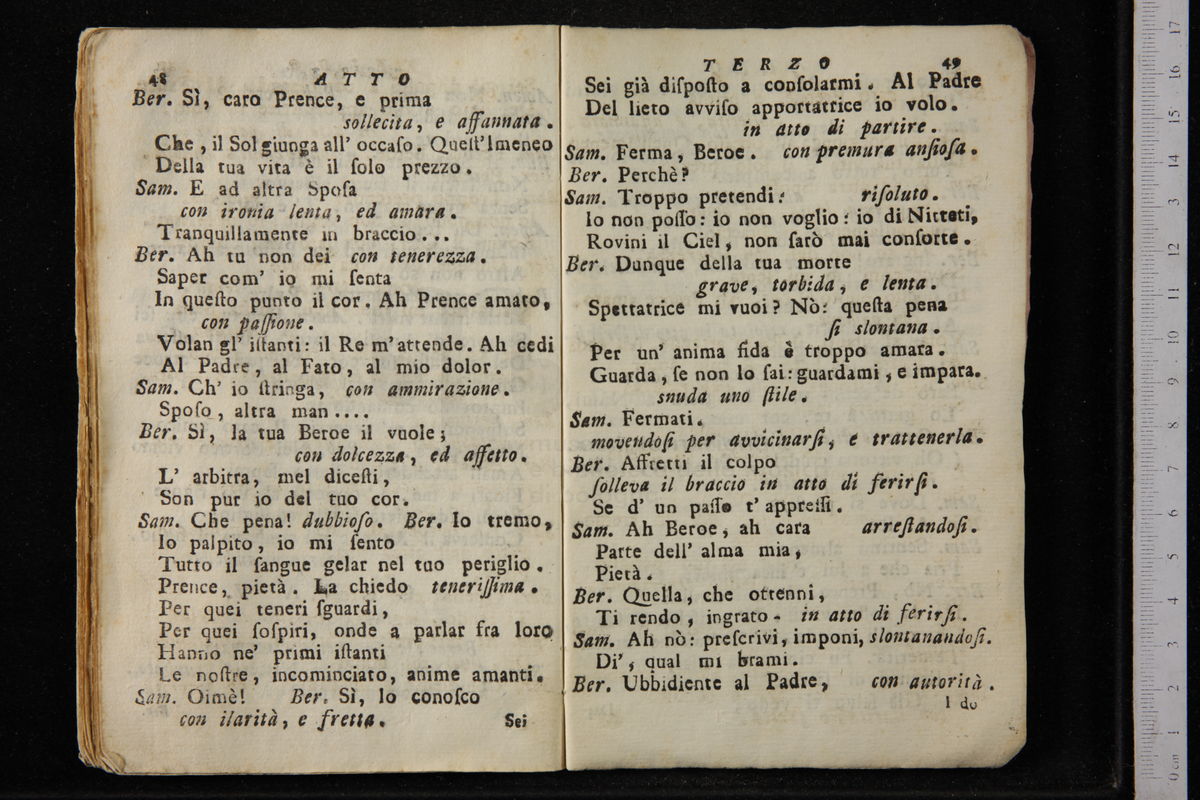 48 ATTO
Ber. Sì, caro Prence, e prima
sollecita, e affannata.
Che, il Sol giunga all' occaſo. Queſt'Imeneo
Della tua vita è il ſolo prezzo.
Sam. E ad altra Spoſa
con ironia lenta, ed amara.
Tranquillamente in braccio...
Ber. Ah tu non dei con tenerezza.
Saper com' io mi ſenta
In queſto punto il cor. Ah Prence amato,
con paſſione.
Volan gl' iſtanti: il Re m'attende. Ah cedi
Al Padre, al Fato, al mio dolor.
Sam. Ch' io ſtringa, con ammirazione.
Spoſo, altra man....
Ber. Sì, la tua Beroe il vuole;
con dolcezza, ed affetto.
L' arbitra, mel diceſti,
Son pur io del tuo cor.
Sam. Che pena! dubbioſo. Ber. Io tremo,
Io palpito, io mi ſento
Tutto il ſangue gelar nel tuo periglio.
Prence, pietà. La chiedo teneriſſima.
Per quei teneri ſguardi,
Per quei ſoſpiri, onde a parlar fra loro
Hanno ne' primi iſtanti
Le noſtre, incominciato, anime amanti.
Sam. Oimè! Ber. Sì, lo conoſco
con ilarità, e fretta. Sei
TERZO 49
Sei già diſpoſto a conſolarmi. Al Padre
Del lieto avviſo apportatrice io volo.
in atto di partire.
Sam. Ferma, Beroe. con premura anſioſa.
Ber. Perchè?
Sam. Troppo pretendi: riſoluto.
Io non poſſo: io non voglio: io di Nitteti,
Rovini il Ciel, non ſarò mai conſorte.
Ber. Dunque della tua morte
grave, torbida, e lenta.
Spettatrice mi vuoi? Nò: queſta pena
ſi slontana.
Per un' anima fida è troppo amara.
Guarda, ſe non lo ſai: guardami, e impara.
snuda uno ſtile.
Sam. Fermati.
movendoſi per avvicinarſi, e trattenerla.
Ber. Affretti il colpo
ſolleva il braccio in atto di ferirſi.
Se d' un paſſo t' appreſſi.
Sam. Ah Beroe, ah cara arreſtandoſi.
Parte dell' alma mia,
Pietà.
Ber. Quella, che ottenni,
Ti rendo, ingrato. in atto di ferirſi.
Sam. Ah nò: preſcrivi, imponi, slontanandoſi.
Di', qual mi brami.
Ber. Ubbidiente al Padre, con autorità.
I do